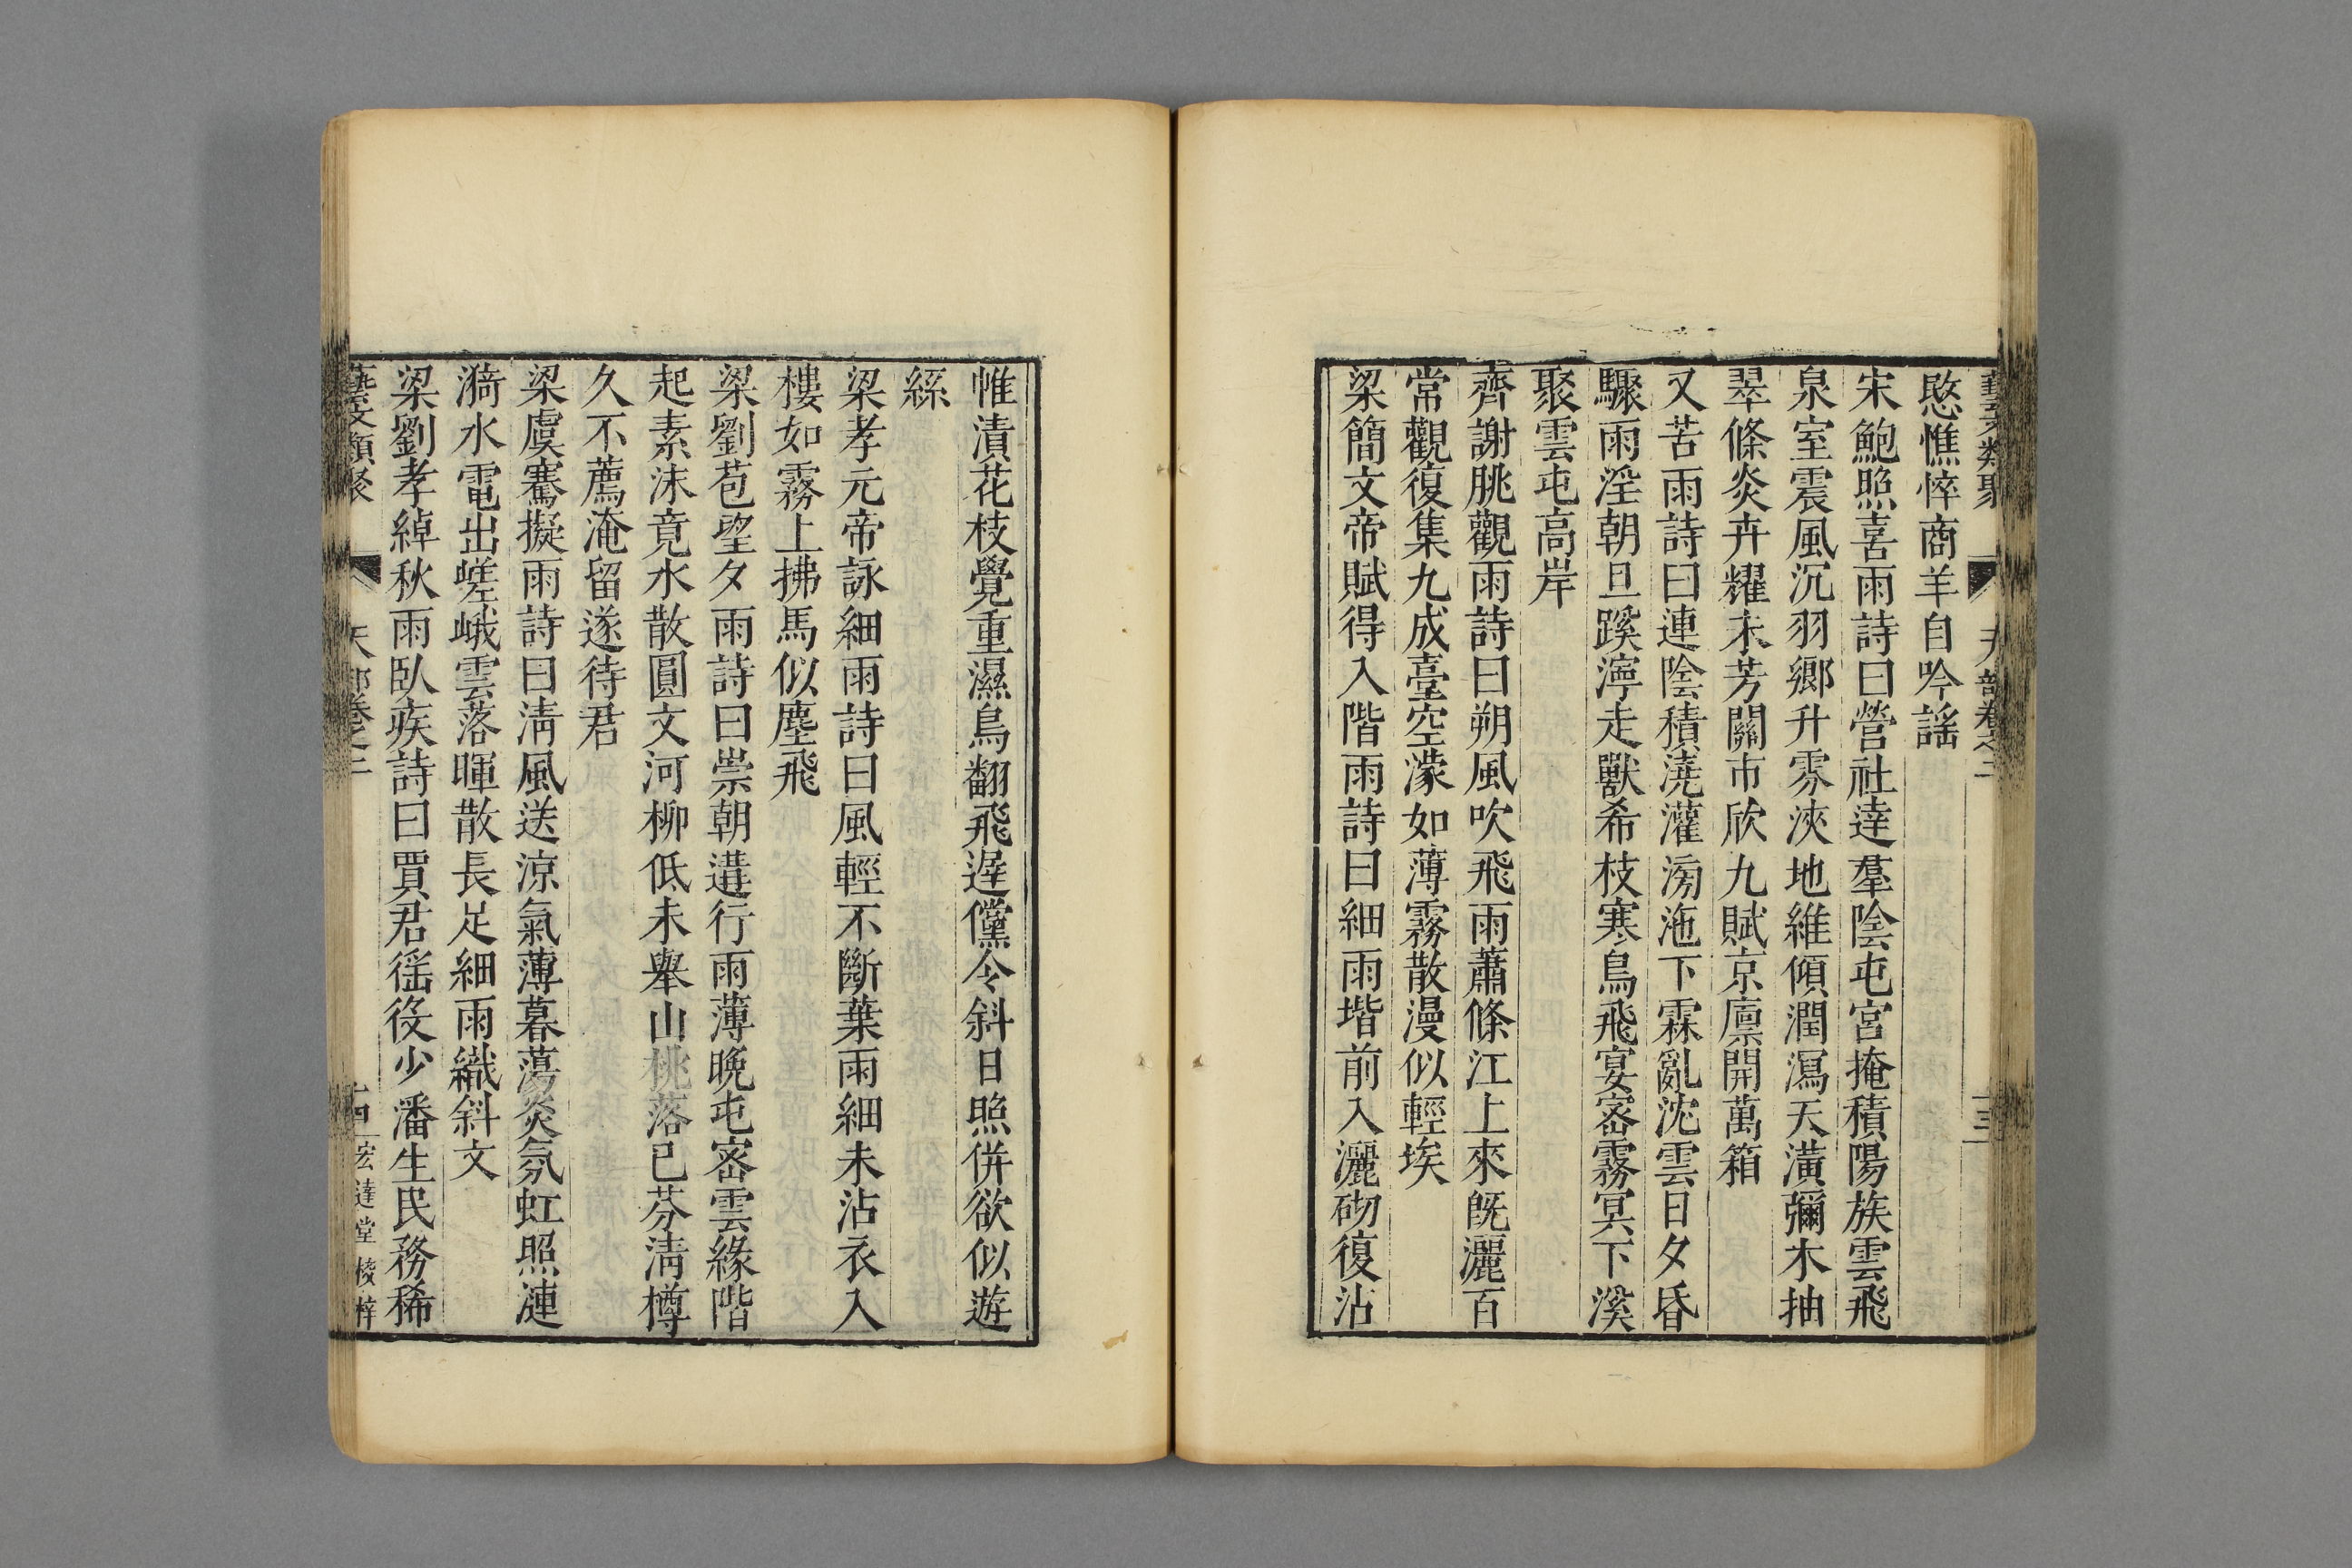 藝文類聚 天部卷之二 十三
愍憔悴商羊自吟謡
宋鮑照喜雨詩曰營社達羣陰屯宮掩積陽族雲飛
泉室震風沉羽鄉升雰浹地維傾潤瀉天潢彌木抽
翠條炎卉耀朱芳關市欣九賦京廪開萬箱
又苦雨詩曰連陰積澆灌滂沲下霖亂沈雲日夕昏
驟雨淫朝旦蹊濘走獸希枝寒鳥飛宴宻霧冥下溪
聚雲屯高岸
齊謝朓觀雨詩曰朔風吹飛雨蕭條江上來旣灑百
常觀復集九成臺空濛如薄霧散漫似輕埃
梁簡文帝賦得入階雨詩曰細雨堦前入灑砌復沾
帷漬花枝覺重濕鳥翻飛遟儻令斜日照併欲似遊
絲
梁孝元帝詠細雨詩曰風輕不斷葉雨細未沾衣入
樓如霧上拂馬似塵飛
梁劉苞望夕雨詩曰崇朝遘行雨薄晚屯宻雲緣階
起素沫竟水散圓文河柳低未舉山桃落已芬淸樽
久不薦淹留遂待君
梁虞騫擬雨詩曰淸風送涼氣薄暮蕩炎氛虹照漣
漪水電出嵯峨雲落暉散長足細雨織斜文
梁劉孝綽秋雨臥疾詩曰賈君徭役少潘生民務稀
藝文類聚 天部卷之二 十四 宏達堂梭梓